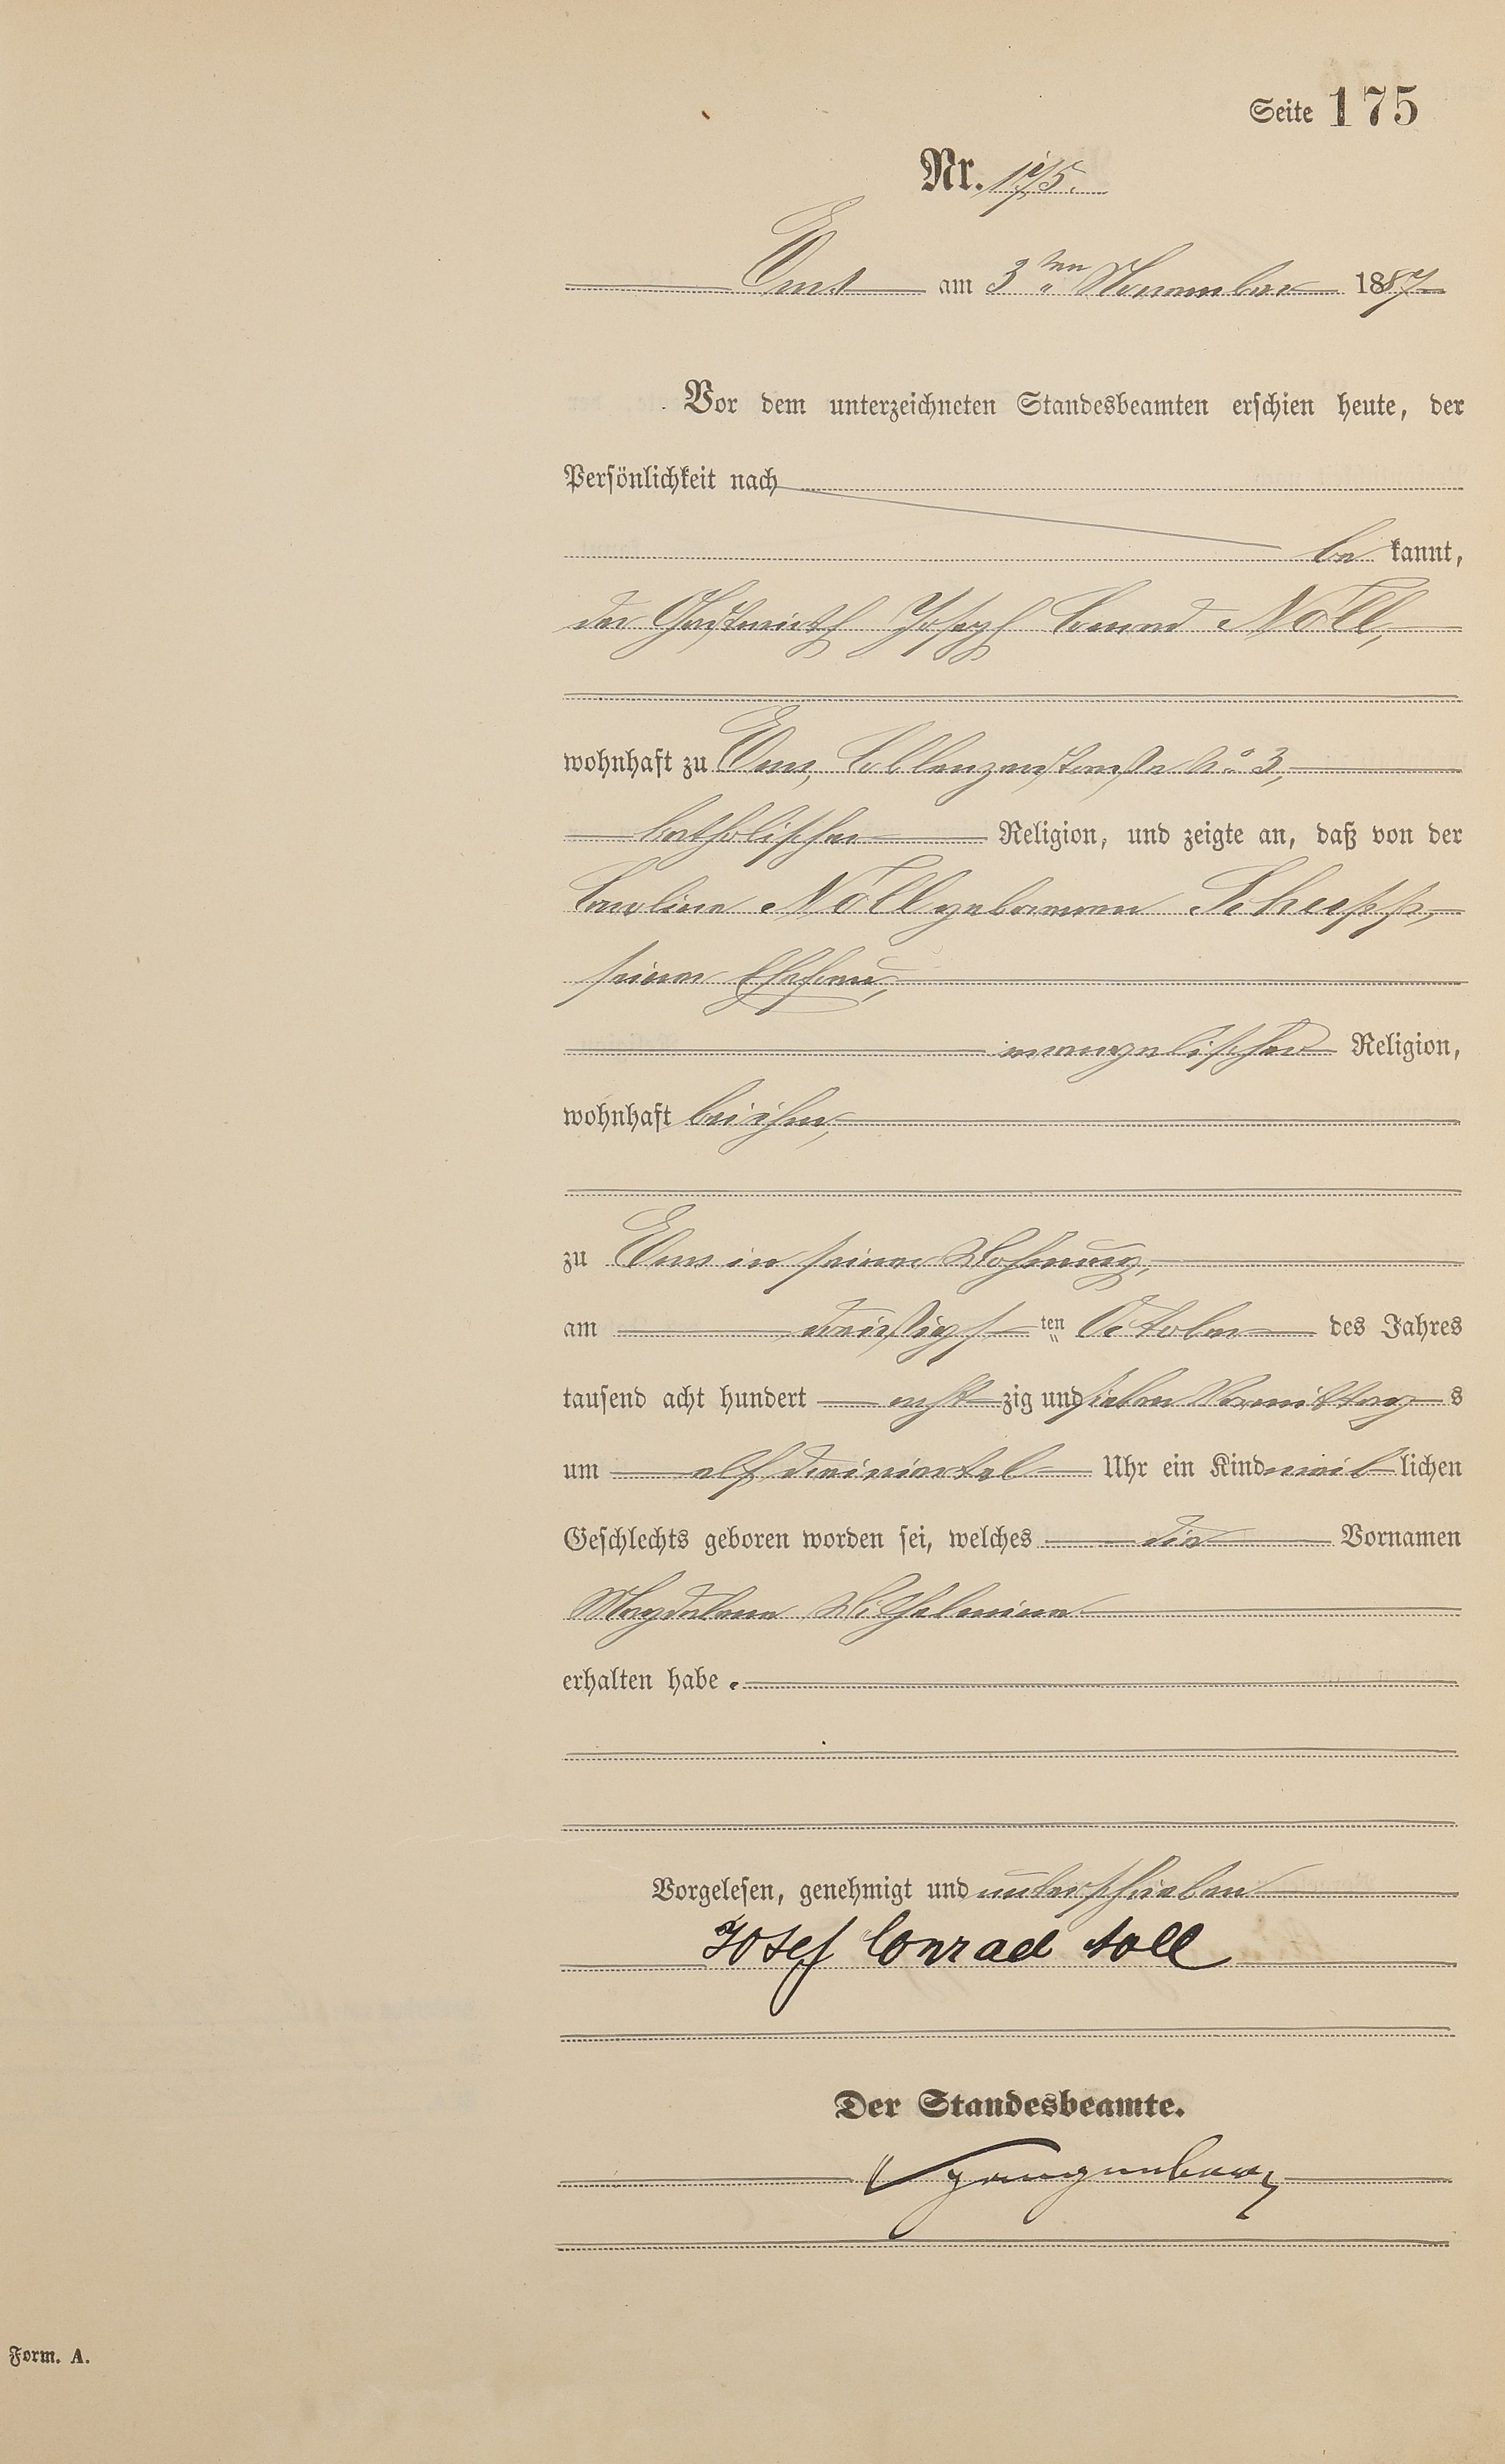 Seite 175
Nr. 175.
Ems am 3ten November 1887
Vor dem unterzeichneten Standesbeamten erschien heute, der
Persönlichkeit nach
be kannt,
der Gastwirth Joseph Conrad Noll,
wohnhaft zu Ems, Coblenzerstraße No 3,
katholischer Religion, und zeigte an, daß von der
Caroline Noll geborenen Schupp,
seiner Ehefrau,
evangelischer Religion,
wohnhaft bei ihm,
zu Ems in seiner Wohnung,
am dreißigsten October des Jahres
tausend acht hundert acht zig und sieben Vormittag s
um elf dreiviertel Uhr ein Kind weib lichen
Geschlechts geboren worden sei, welches die Vornamen
Magdalena Wilhelmina
erhalten habe.
Vorgelesen, genehmigt und unterschrieben
Josef Conrad Noll
Der Standesbeamte.
Form. A.